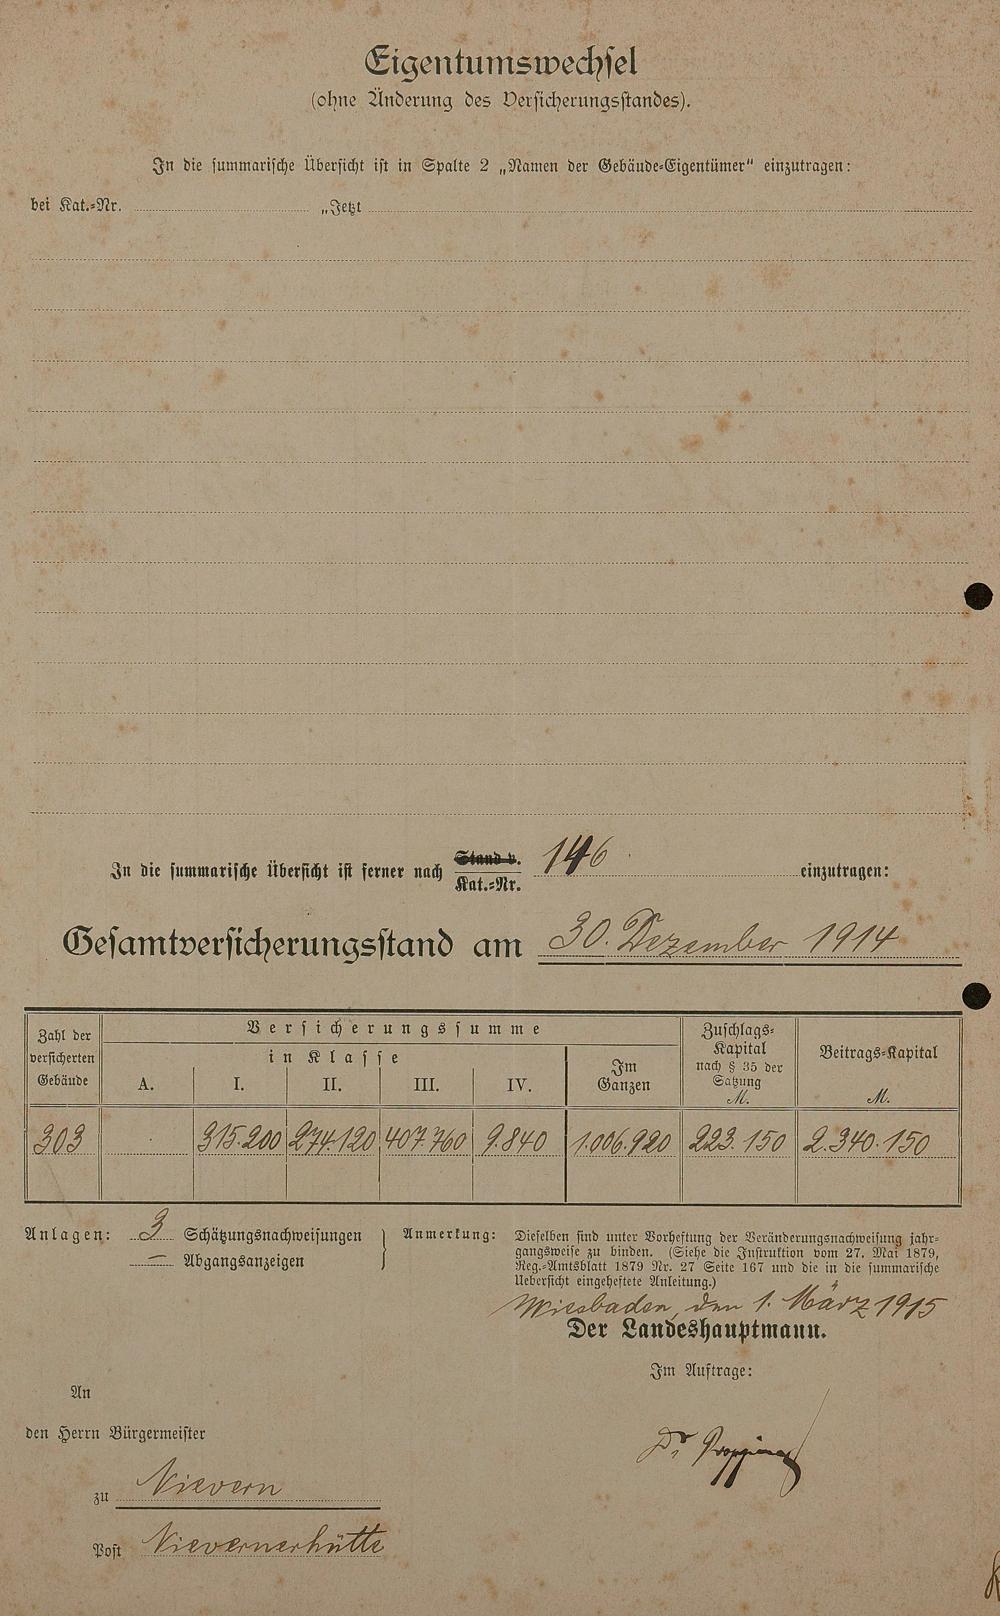 Eigentumswechsel
(ohne Änderung des Versicherungsstandes).
In die summarische Übersicht ist in Spalte 2 „Namen der Gebäude-Eigentümer" einzutragen:
bei Kat.-Nr. „Jetzt
In die summarische Übersicht ist ferner nach Stand v. Kat.-Nr. 146 einzutragen:
Gesamtversicherungsstand am 30. Dezember 1914
Zahl der versicherten Gebäude
Versicherungssumme
in Klasse
A. I. II. III. IV.
Im Ganzen
Zuschlags-Kapital nach § 35 der Satzung M.
Beitrags-Kapital M.
303 315.200 274.120 407.760 9.840 1.006.920 223.150 2.340.150
Anlagen: 3 Schätzungsnachweisungen
— Abgangsanzeigen
Anmerkung: Dieselben sind unter Vorheftung der Veränderungsnachweisung jahr-
gangsweise zu binden. (Siehe die Instruktion vom 27. Mai 1879,
Reg.-Amtsblatt 1879 Nr. 27 Seite 167 und die in die summarische
Uebersicht eingeheftete Anleitung.)
Wiesbaden, den 1. März 1915
Der Landeshauptmann.
Im Auftrage:
Dr
An
den Herrn Bürgermeister
zu Nievern
Post Nievernerhütte